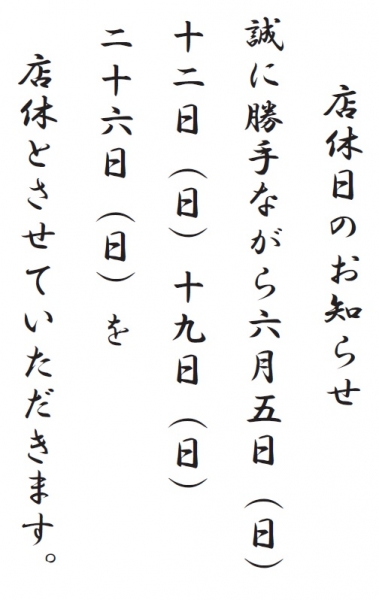 店休日のお知らせ
誠に勝手ながら六月五日（日）
十二日（日）十九日（日）
二十六日（日）を
店休とさせていただきます。